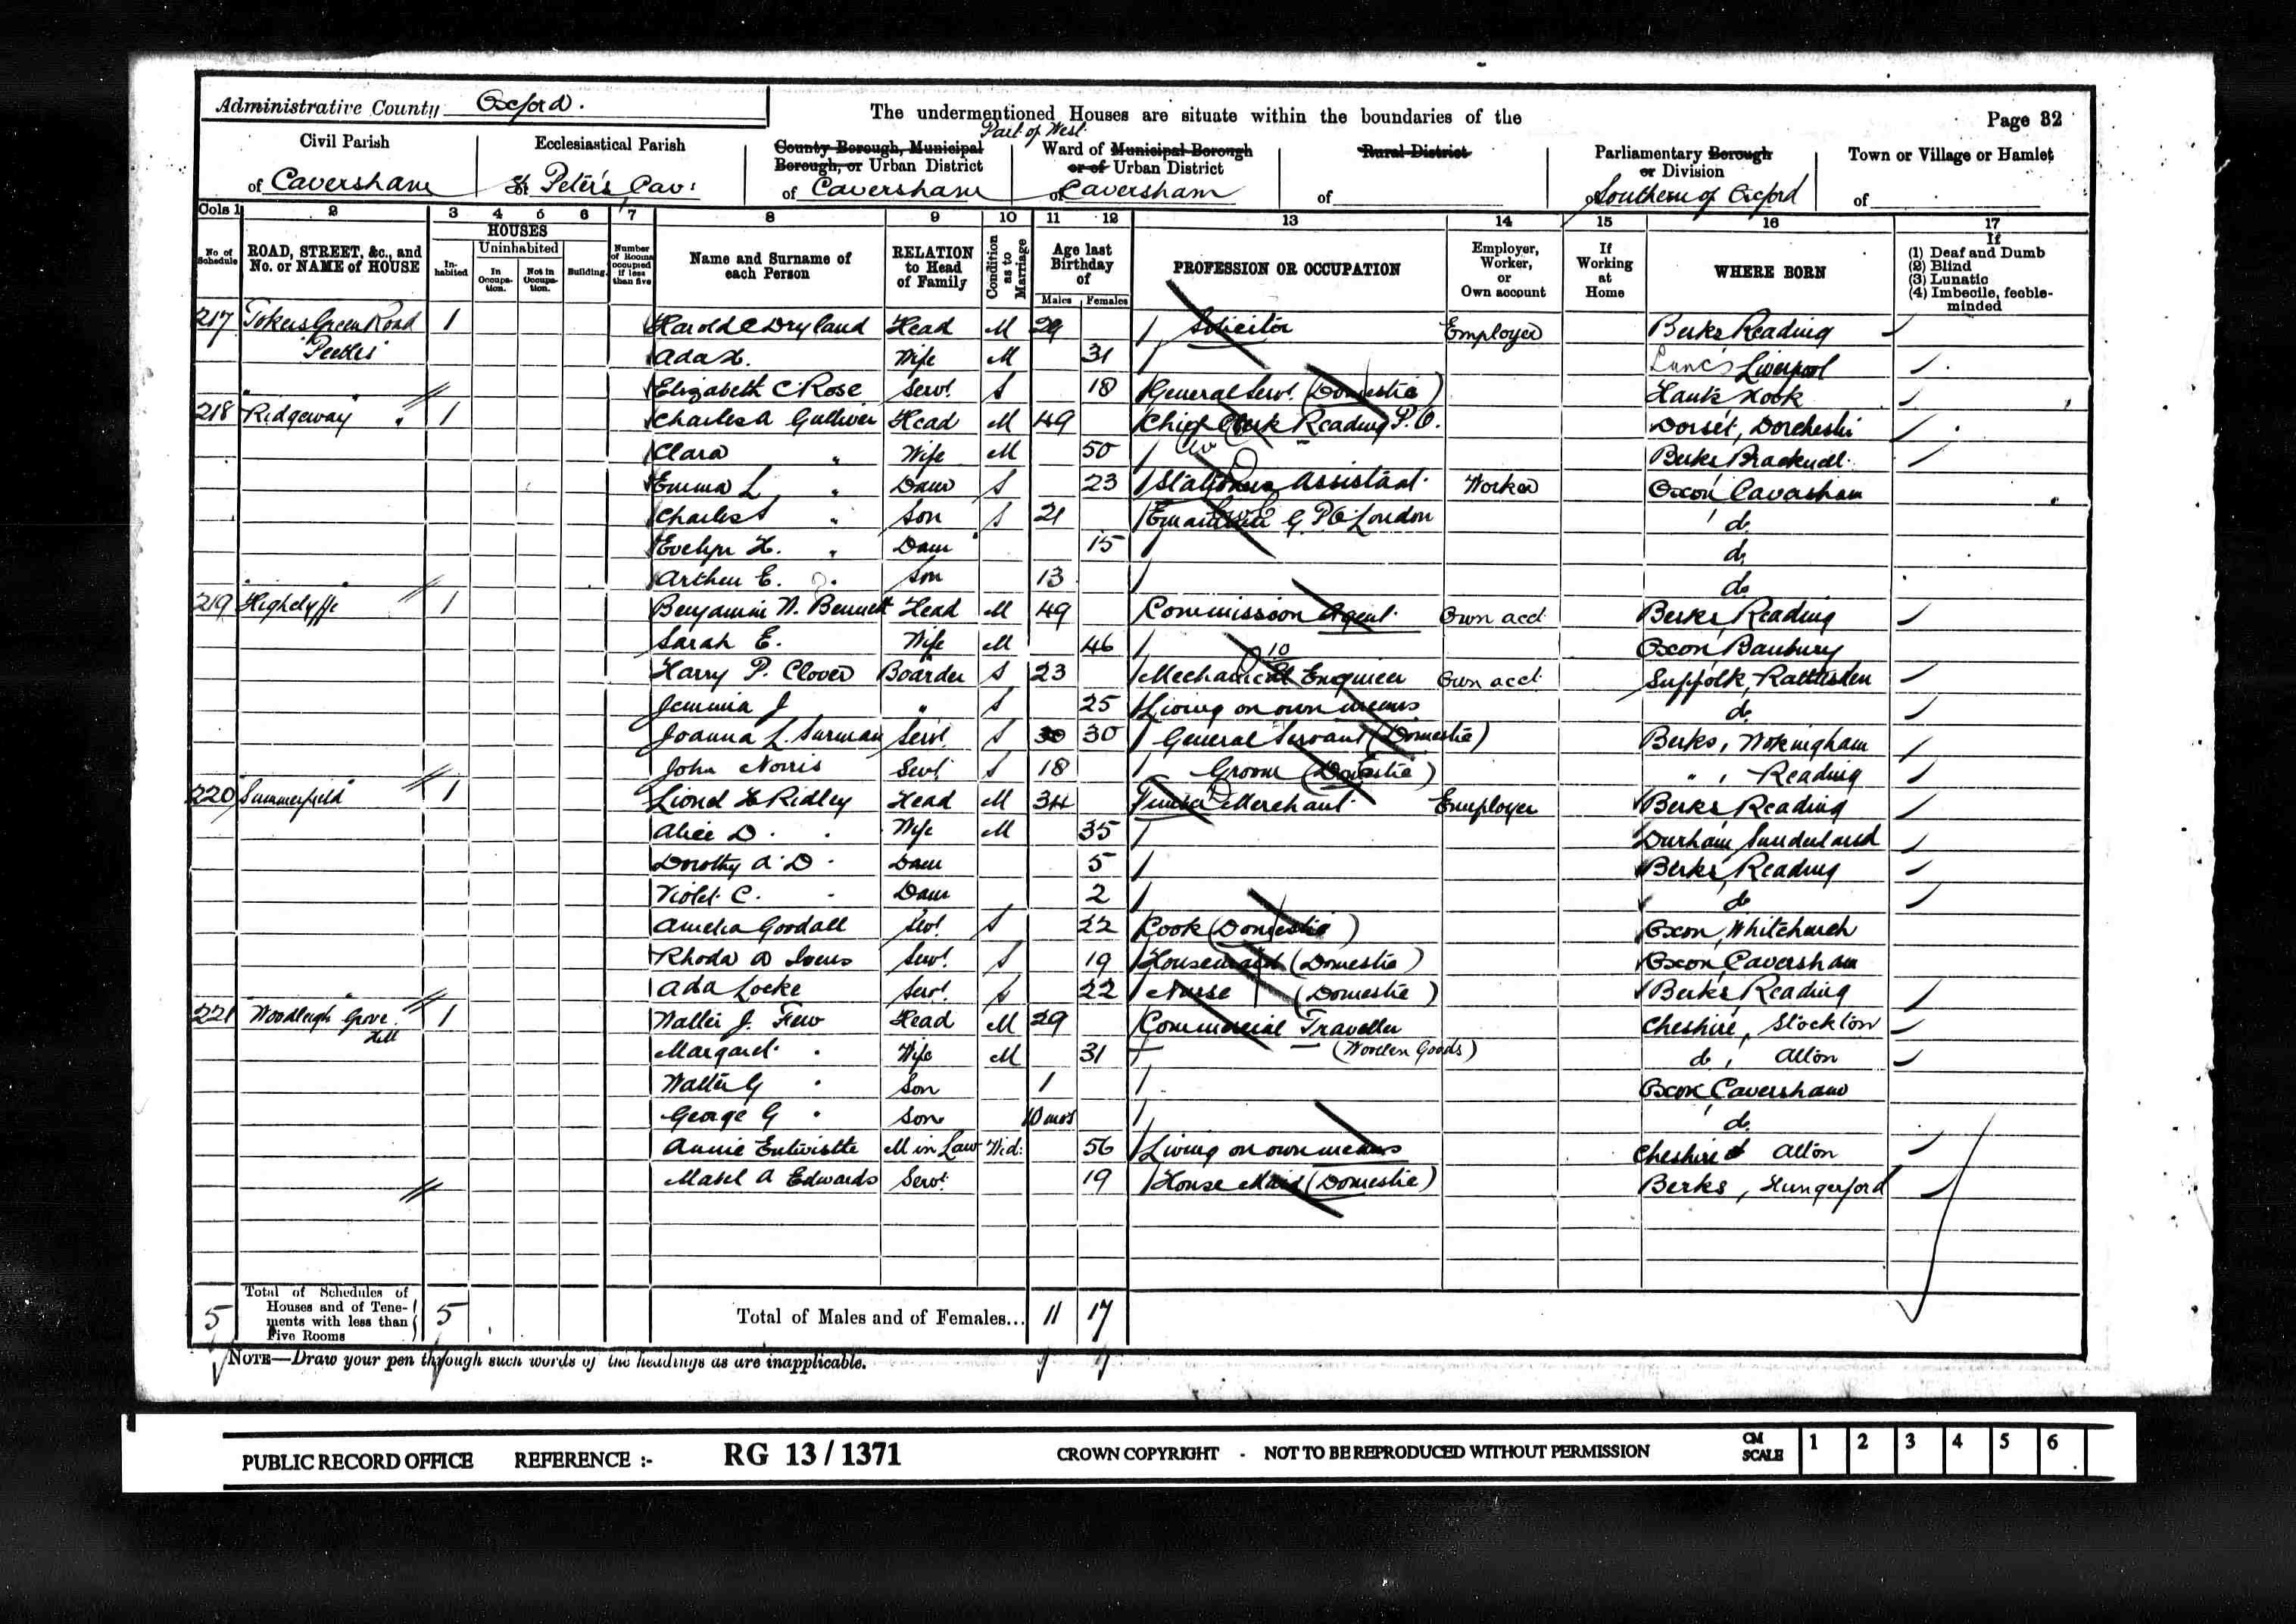 Administrative County Oxford.
The undermentioned Houses are situate within the boundaries of the
Page 32
Civil Parish of Caversham
Ecclesiastical Parish St Peter's Cav:
County Borough, Municipal Borough, or Urban District of Caversham
Part of West
Ward of Municipal Borough or of Urban District of Caversham
Rural District of
Parliamentary Borough or Division of Southern of Oxford
Town or Village or Hamlet of
Cols 1 2 3 4 5 6 7 8 9 10 11 12 13 14 15 16 17
No of Schedule
ROAD, STREET, &c., and No. or NAME of HOUSE
HOUSES
Inhabited
Uninhabited
In Occupation.
Not in Occupation.
Building.
Number of Rooms occupied if less than five
Name and Surname of each Person
RELATION to Head of Family
Condition as to Marriage
Age last Birthday of
Males Females
PROFESSION OR OCCUPATION
Employer, Worker, or Own account
If Working at Home
WHERE BORN
If
(1) Deaf and Dumb
(2) Blind
(3) Lunatic
(4) Imbecile, feeble-minded
217 Tokers Green Road 1 Harold C Dryland Head M 29 Solicitor Employer Berks Reading
Ada Wife M 31 Lancs Liverpool
Elizabeth C. Rose Servt. S 18 General Servt. (Domestic) Hants Hook
218 Ridgeway " 1 Charles A Gulliver Head M 49 Chief Clerk Reading P.O. Dorset, Dorchester
Clara " Wife M 50 Berks Bracknell
Emma L " Daur S 23 Stationers Assistant. Worker Oxon Caversham
Charles " Son S 21 G.P.O. London do
Evelyn H. " Daur 15 do
Arthur E. " Son 13 do
219 Highclyffe 1 Benjamin W. Bennett Head M 49 Commission Agent. Own acct. Berks, Reading
Sarah E. Wife M 46 Oxon, Banbury
Harry P. Clover Boarder S 23 Mechanical Engineer Own acct. Suffolk, Rattlesden
Jemima J " S 25 Living on own means do
Joanna L. Surman Servt. S 30 30 General Servant (Domestic) Berks, Wokingham
John Norris Servt. S 18 Groom (Domestic) " , Reading
220 Summerfield 1 Lionel H Ridley Head M 34 Timber Merchant. Employer Berks Reading
Alice D. Wife M 35 Durham Sunderland
Dorothy A. D. Daur 5 Berks, Reading
Violet C. Daur 2 do
Amelia Goodall Servt. S 22 Cook (Domestic) Oxon, Whitchurch
Rhoda A Servt. S 19 Housemaid (Domestic) Oxon, Caversham
Ada Locke Servt. S 22 Nurse (Domestic) Berks, Reading
221 Woodleigh Grove Hill 1 Walter J. Few Head M 29 Commercial Traveller Cheshire, Stockton
Margaret Wife M 31 (Woollen Goods) do, Alton
Walter G Son 1 Oxon Caversham
George G Son 10 mos do.
Annie Entwistle M in Law Wid: 56 Living on own means Cheshire Alton
Mabel A Edwards Servt. 19 House Maid (Domestic) Berks, Hungerford
5 Total of Schedules of Houses and of Tenements with less than Five Rooms 5 Total of Males and of Females... 11 17
NOTE—Draw your pen through such words of the headings as are inapplicable.
PUBLIC RECORD OFFICE REFERENCE :- RG 13/1371 CROWN COPYRIGHT - NOT TO BE REPRODUCED WITHOUT PERMISSION CM SCALE 1 2 3 4 5 6